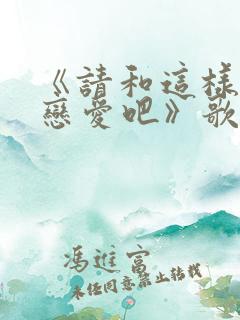 《請和這樣
戀愛吧》歌
馮進富
未經同意禁止轉載